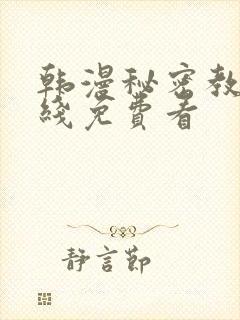 韩漫秘密教
线免费看
静言节